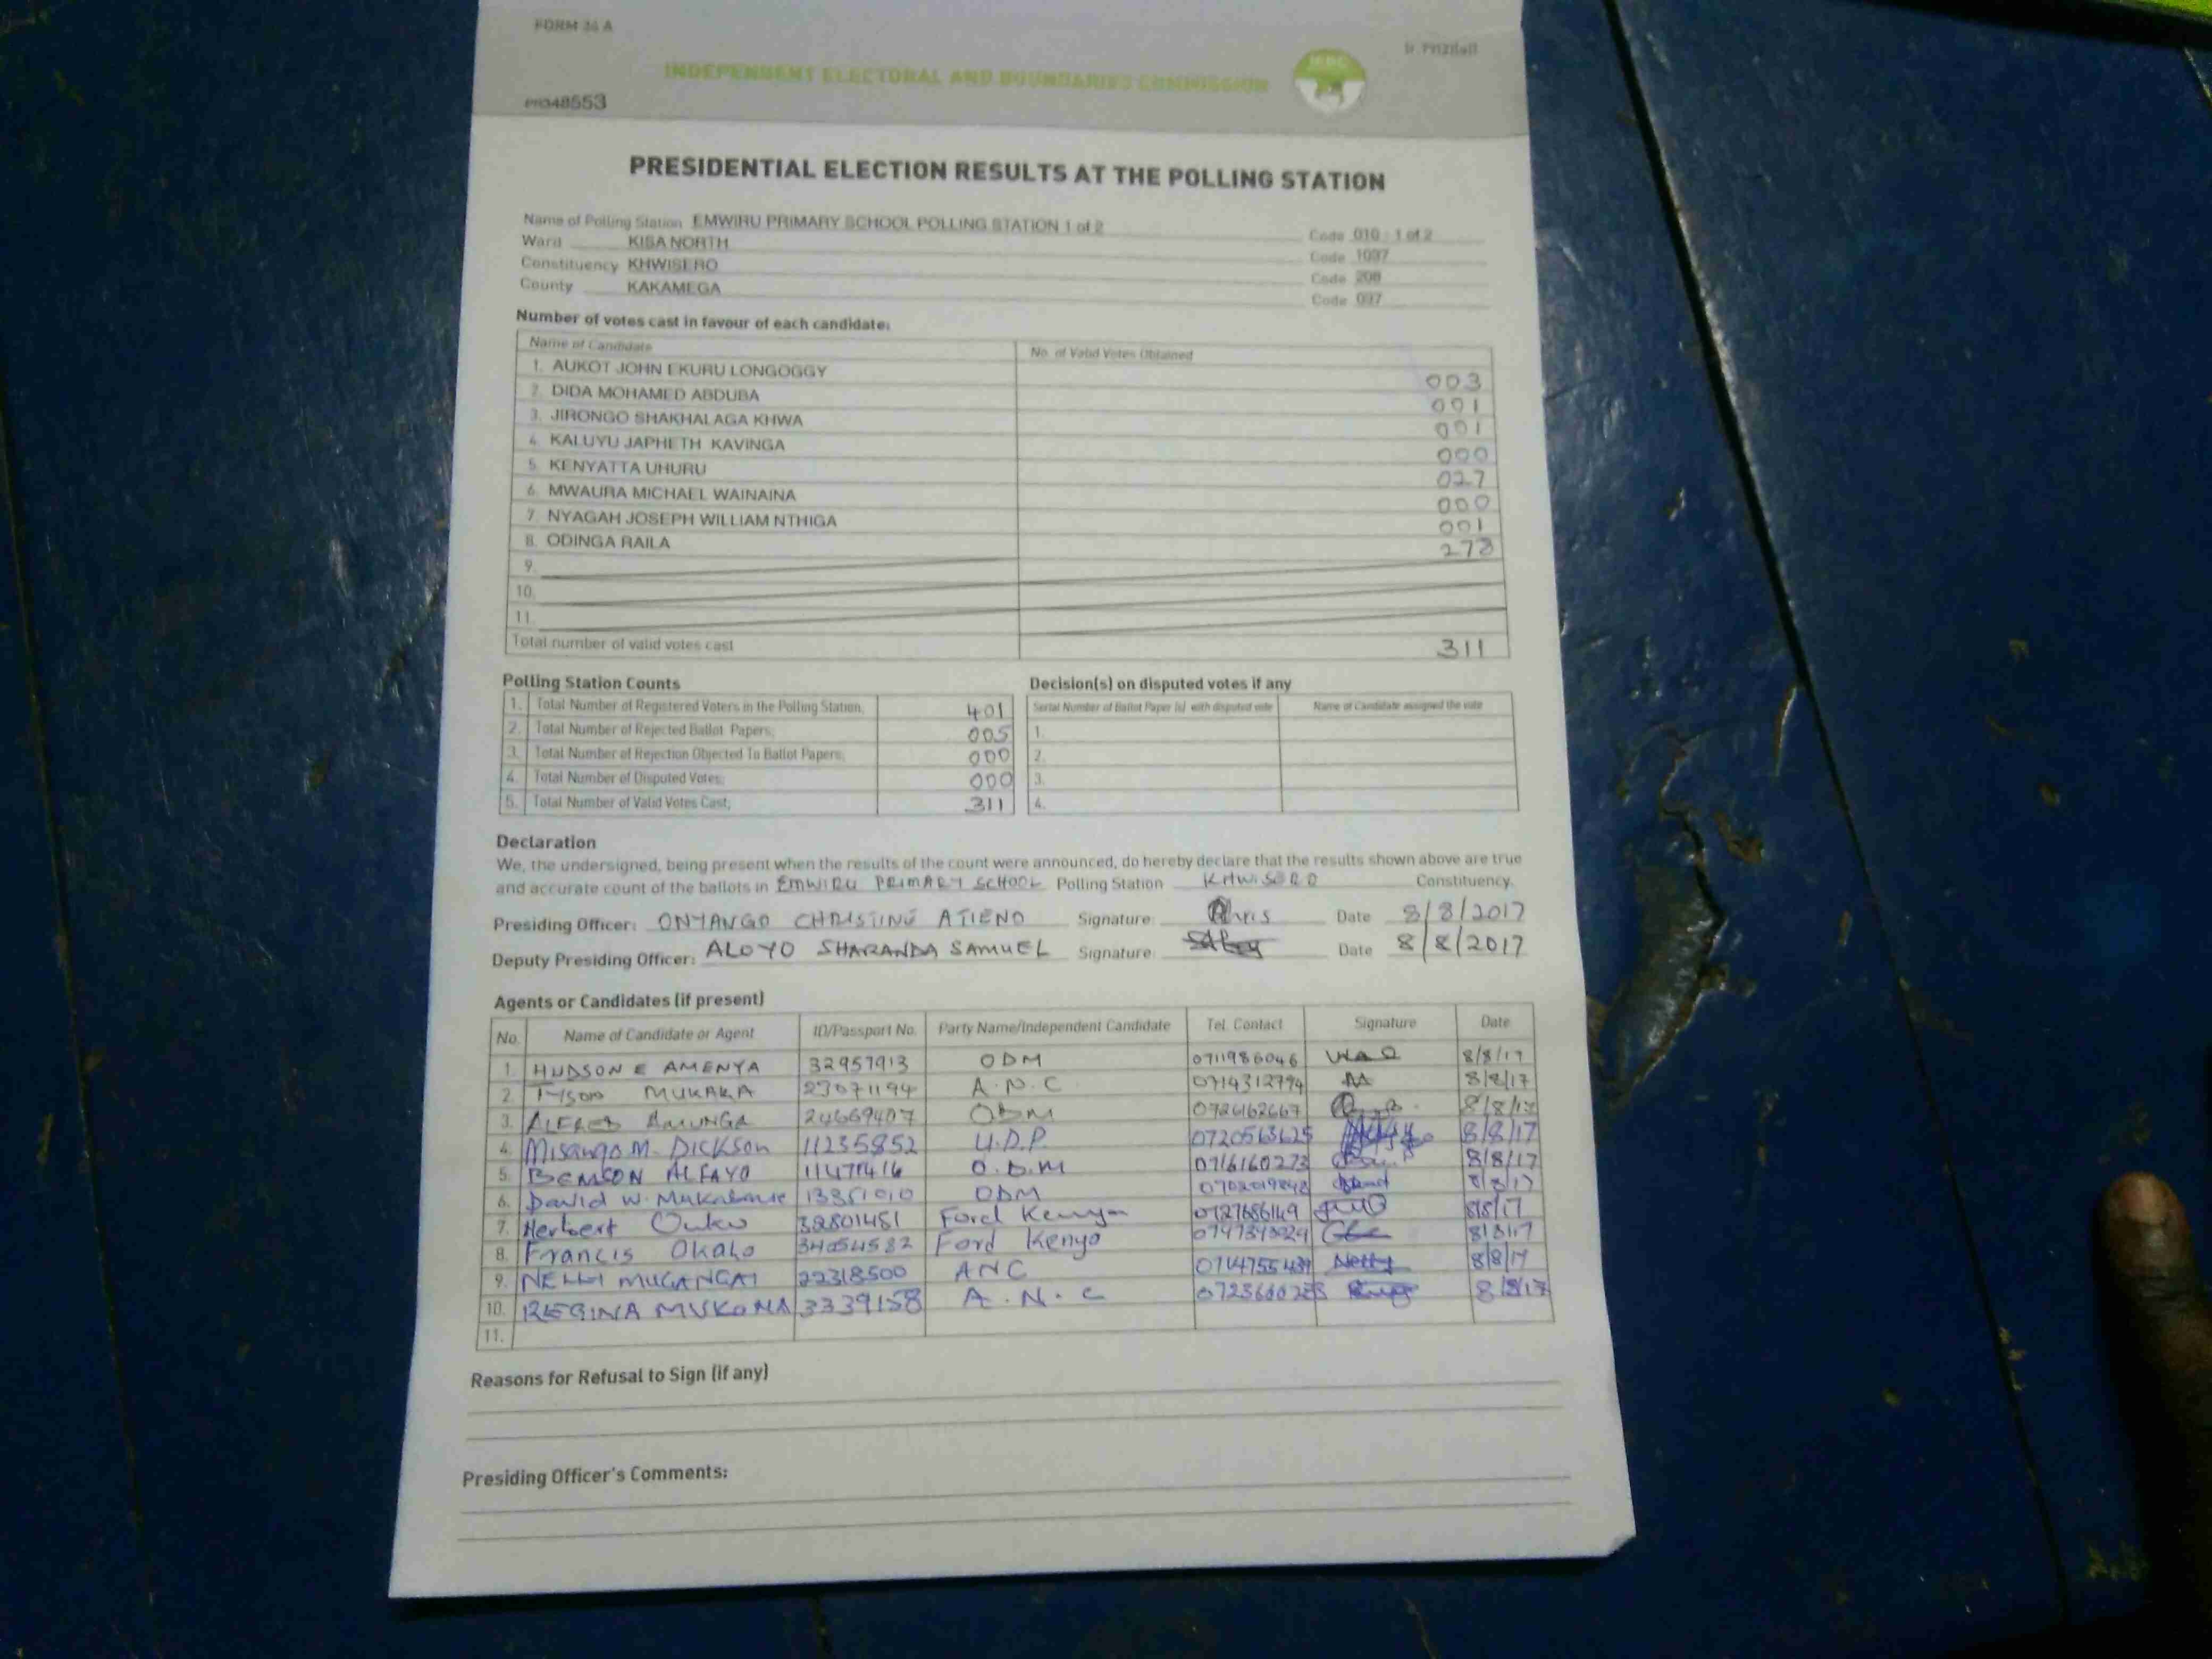 FORM 34 A
INDEPENDENT ELECTORAL AND BOUNDARIES COMMISSION
IEBC
PRESIDENTIAL ELECTION RESULTS AT THE POLLING STATION
Name of Polling Station EMWIRU PRIMARY SCHOOL POLLING STATION 1 of 2 Code 010 - 1 of 2
Ward KISA NORTH Code 1097
Constituency KHWISERO Code 208
County KAKAMEGA Code 037
Number of votes cast in favour of each candidate:
Name of Candidate No. of Valid Votes Obtained
1. AUKOT JOHN EKURU LONGOGGY 003
2. DIDA MOHAMED ABDUBA 001
3. JIRONGO SHAKHALAGA KHWA 001
4. KALUYU JAPHETH KAVINGA 000
5. KENYATTA UHURU 027
6. MWAURA MICHAEL WAINAINA 000
7. NYAGAH JOSEPH WILLIAM NTHIGA 001
8. ODINGA RAILA 278
9.
10.
11.
Total number of valid votes cast 311
Polling Station Counts
1. Total Number of Registered Voters in the Polling Station; 401
2. Total Number of Rejected Ballot Papers; 005
3. Total Number of Rejection Objected To Ballot Papers; 000
4. Total Number of Disputed Votes; 000
5. Total Number of Valid Votes Cast; 311
Decision(s) on disputed votes if any
Serial Number of Ballot Paper (s) with disputed vote Name of Candidate assigned the vote
1.
2.
3.
4.
Declaration
We, the undersigned, being present when the results of the count were announced, do hereby declare that the results shown above are true
and accurate count of the ballots in EMWIRU PRIMARY SCHOOL Polling Station KHWISERO Constituency.
Presiding Officer: ONYANGO CHRISTINE ATIENO Signature: Date 8/8/2017
Deputy Presiding Officer: ALOYO SHARANDA SAMUEL Signature: Date 8/8/2017
Agents or Candidates (if present)
No. Name of Candidate or Agent ID/Passport No. Party Name/Independent Candidate Tel. Contact Signature Date
1. HUDSON E AMENYA 32957913 ODM 0711986046 8/8/17
2. Tyson MUKAKA 23071194 A.N.C 0714312794 8/8/17
3. ALFRED AMUNGA 24669407 ODM 0726162667 8/8/17
4. Misango M. Dickson 11235852 U.D.P 0720563625 8/8/17
5. BENSON ALFAYO 11471416 O.D.M 0716160273 8/8/17
6. David W. 13351010 ODM 8/8/17
7. Herbert Ouko 32801481 Ford Kenya 0727686149 8/8/17
8. Francis Okaho 34054582 Ford Kenya 8/8/17
9. 22318500 ANC 8/8/17
10. REGINA MUKOMA 3339158 A.N.C 8/8/17
11.
Reasons for Refusal to Sign (if any)
Presiding Officer's Comments: